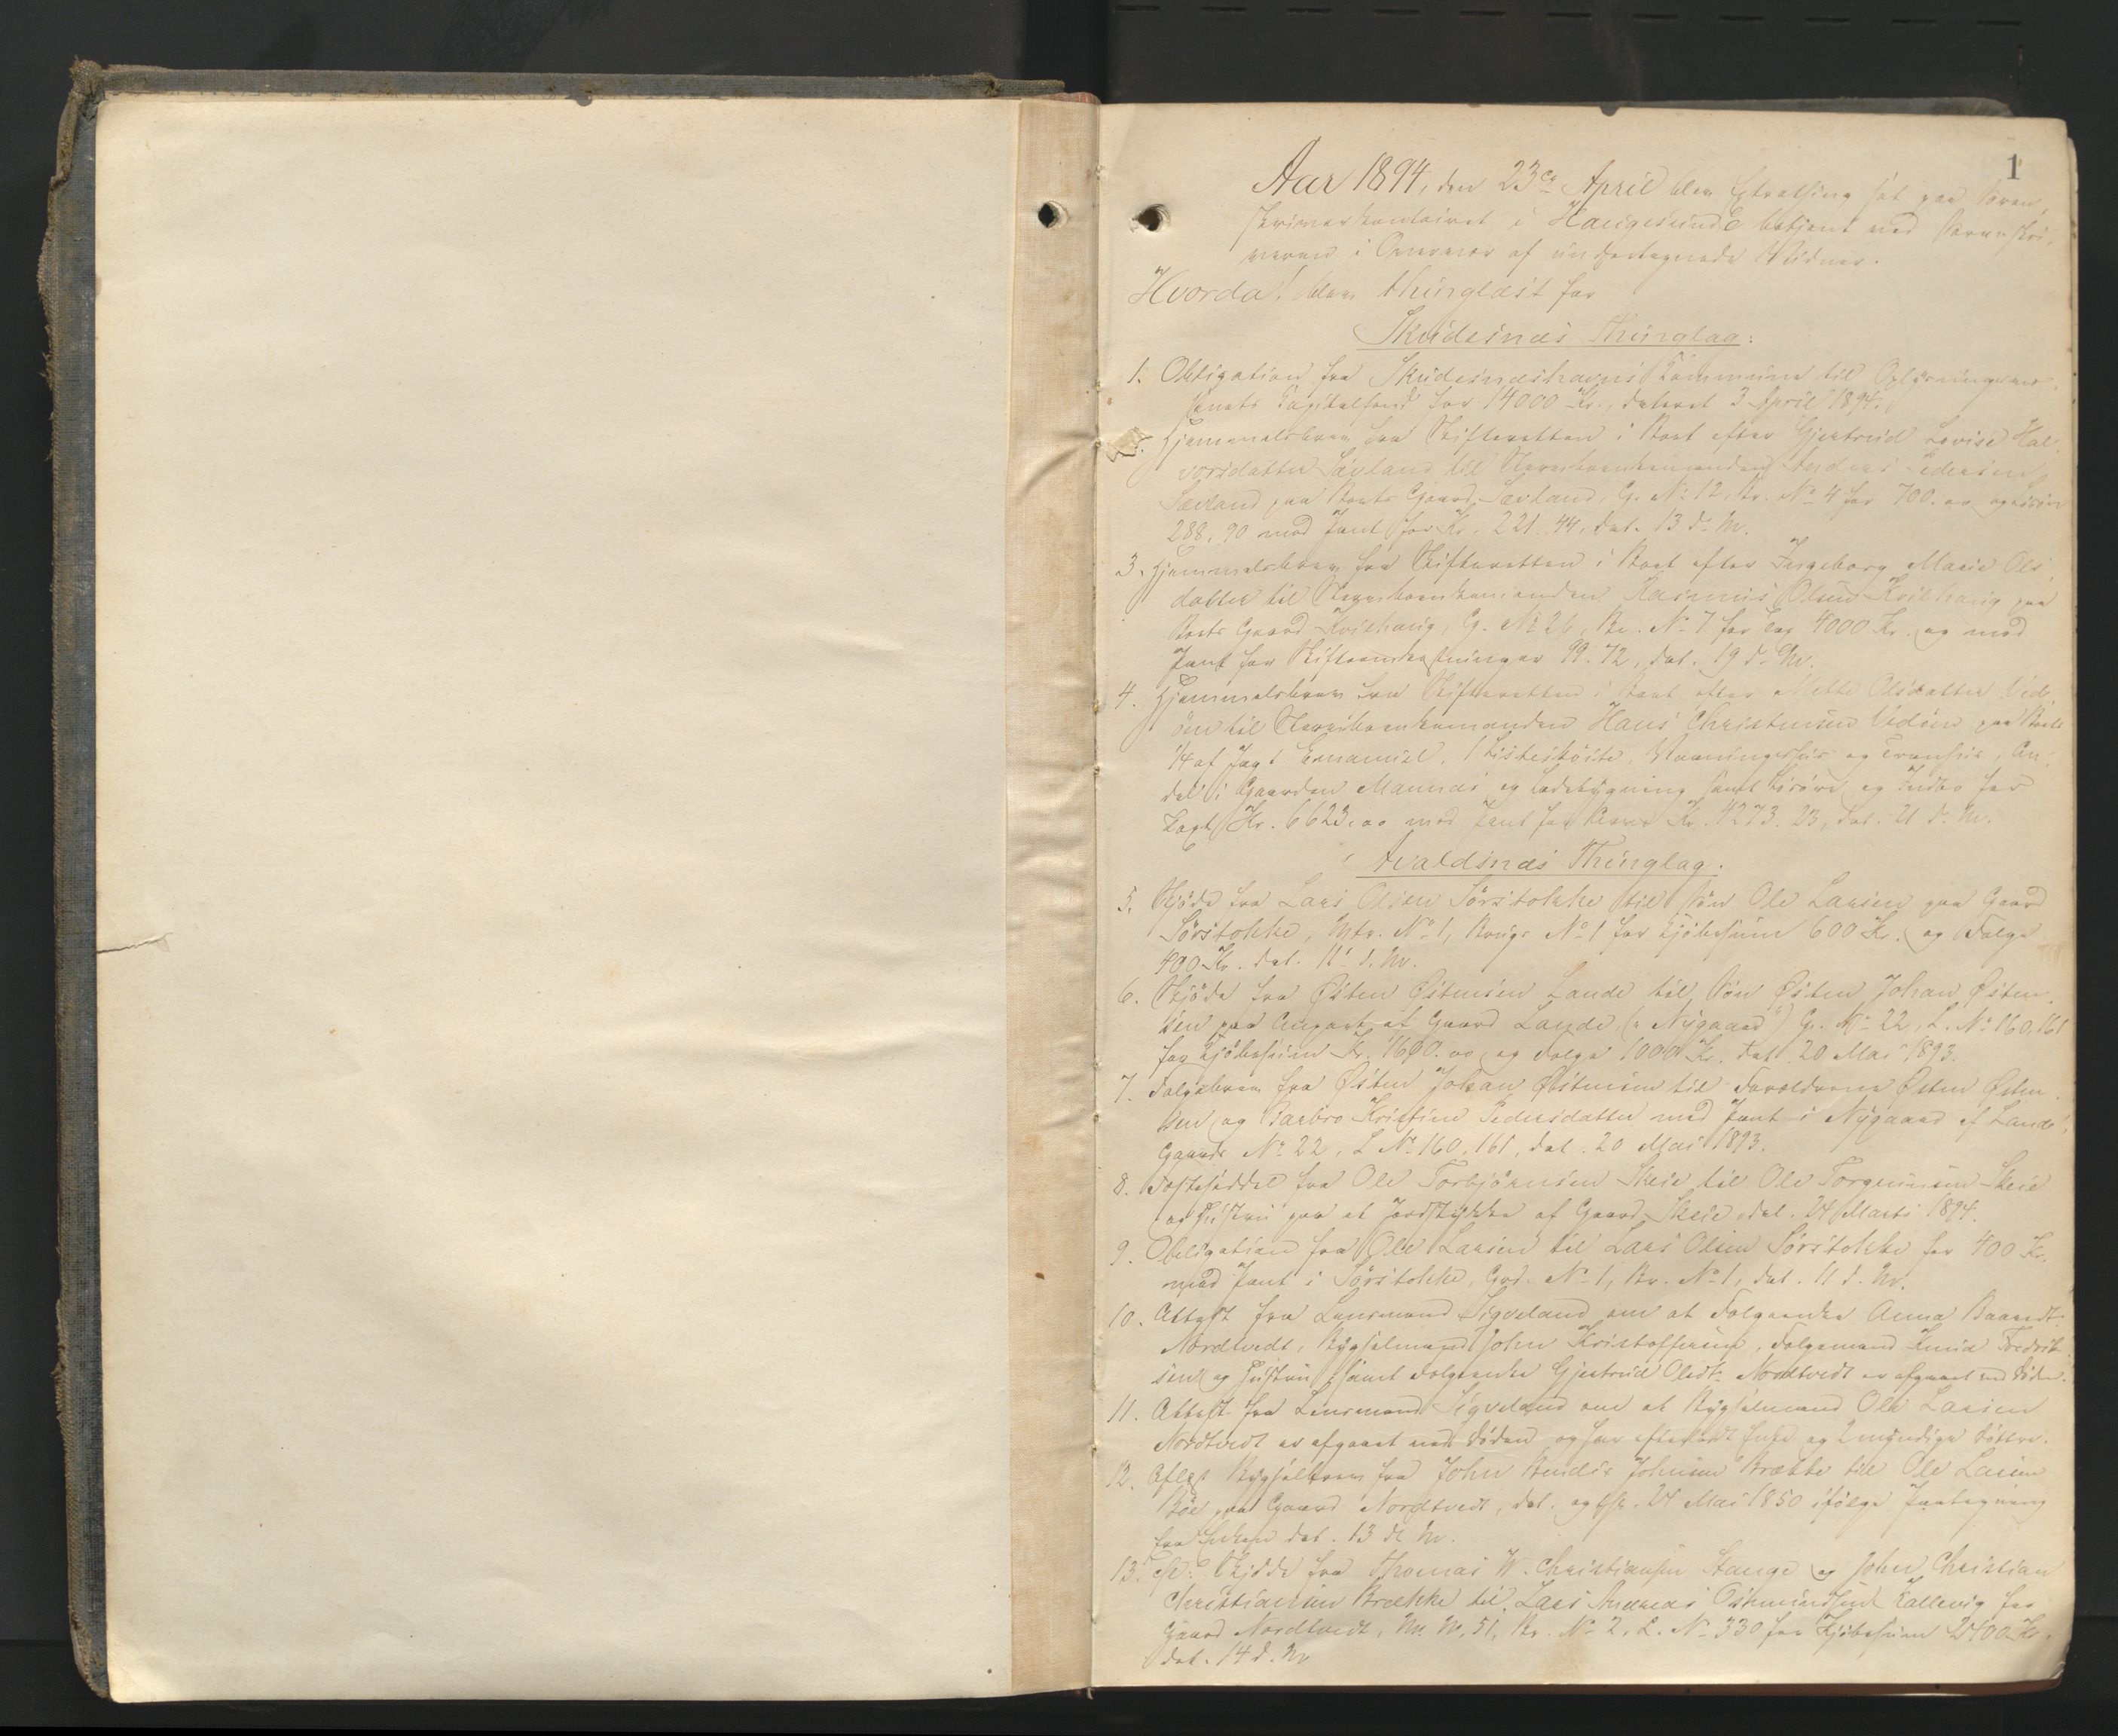 1
Aar 1894, den 23de April blev Extrathing sat paa Soren-
skriverkontoiret i Haugesund betjent med Sorenskri-
veren i Overvær af undertegnede Vidner.
Hvorda! blev thinglæst for
Skudesnæs Thinglag:
1. Obligation fra Skudesnæshavns Kommune til Oplysningsvæ-
senets Kapitalfond for 14000 Kr., dateret 3 April 1894.
Hjemmelsbrev fra Skifteretten i Boet efter Gjertrud Lovise Hal-
vorsdatter Sævland til Stervboenkemanden Anders Pedersen
Sævland paa Boets Gaard Sævland, G. No 12, Br. No 4 for 700.00 og Løsøre
288,90 mod Pant for Kr. 221.44, dat. 13 d. M.
3. Hjemmelsbrev fra Skifteretten i Boet efter Ingeborg Marie Ols-
datter til Stervboenkemanden Rasmus Olsen Kvilhaug paa
Boets Gaard Kvilhaug, G. No 26, Br. No 7 for 4000 Kr. og mod
Pant for Skifteomkostninger 99.72, dat. 19 d. M.
4. Hjemmelsbrev fra Skifteretten i Boet efter Mette Olsdatter Ved-
øen til Stervboenkemanden Hans Christensen Vedøen paa Boets
1/4 af Jagt Emanuel, 1 Listerskøite, Vaaningshus og , An-
del i Gaarden Mannes og Ladebygning samt Løsøre og Indbo for
Taxt Kr. 6623.00 mod Pant for Kr. 4273.23, dat. 21 d. M.
Avaldsnæs Thinglag.
5. Skjøde fra Lars Olsen Sørstokke til Søn Ole Larsen paa Gaard
Sørstokke, Mtr. No 1, Brugs No 1 for Kjøbesum 600 Kr. og Folge
400 Kr. dat. 11 d. M.
6. Skjøde fra Østen Østensen Lande til Søn Østen Johan Østen-
sen paa Anpart af Gaard Lande ("Nygaard") G. No 22, L. No 160, 161
for Kjøbesum Kr. 1600.00 og Folge 1000 Kr. dat. 20 Mai 1893.
7. Folgebrev fra Østen Johan Østensen til Forældrene Østen Østen-
sen og Barbro Kristine Pedersdatter med Pant i Nygaard af Lande,
Gaards No 22, L No 160, 161, dat. 20 Mai 1893.
8. Festeseddel fra Ole Torbjørnsen Skeie til Ole Torgersen Skeie
og Hustru paa et Jordstykke af Gaard Skeie, dat. 24 Marts 1894.
9. Obligation fra Ole Larsen til Lars Olsen Sørstokke for 400 Kr.
med Pant i Sørstokke, Grd. No 1, Br. No 1, dat. 11 d. M.
10. Attest fra Lensmand Sigveland om at Folgeenke Anna Baardt.
Nordtvedt, Bygselmand John Kristoffersen, Folgemand Knud Fredrik-
sen og Hustru samt Folgeenke Gjertrud Olsdt. Nordtvedt er afgaaet ved Døden.
11. Attest fra Lensmand Sigveland om at Bygselmand Ole Larsen
Nordtvedt er afgaaet ved Døden og har efterladt Enke og 2 myndige Døttre.
12. Aflyst Bygselbrev fra John Bendix Johnsen Brække til Ole Larsen
Bøe paa Gaard Nordtvedt, dat. og thl. 24 Mai 1850 ifølge Paategning
fra Enken dat. 13 d. M.
13. Skjøde fra Thomas W. Christiansen Stange og John Christian
Christiansen Brække til Lars Andreas Osmundsen Kallevig for
Gaard Nordtvedt, M. No. 51, Br. No 2, L. No 330 for Kjøbesum 2400 Kr,
dat. 14 d. M